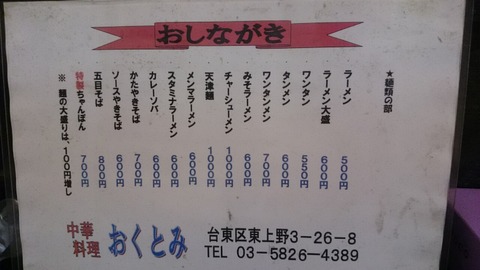 おしながき
★麺類の部
ラーメン 500円
ラーメン大盛 600円
ワンタン 550円
タンメン 600円
ワンタンメン 700円
みそラーメン 600円
チャーシューメン 1000円
天津麺 1000円
メンマラーメン 600円
スタミナラーメン 600円
カレーソバ 600円
かたやきそば 700円
ソースやきそば 600円
五目そば 800円
特製ちゃんぽん 700円
※ 麺の大盛りは、100円増し
中華料理 おくとみ
台東区東上野3-26-8
TEL 03-5826-4389